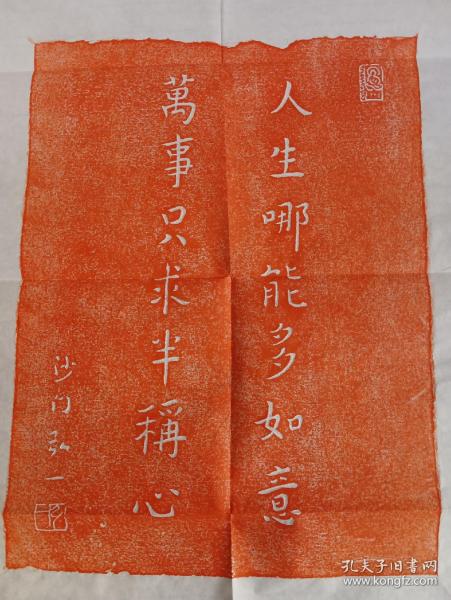 人生哪能多如意
萬事只求半稱心
沙门弘一
孔夫子旧书网
www.kongfz.com